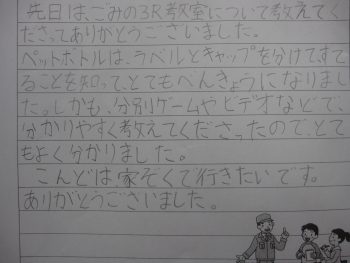 先日は、ごみの3R教室について教えてく
ださってありがとうございました。
ペットボトルは、ラベルとキャップを分けてすて
ることを知って、とてもべんきょうになりまし
た。しかも、分別ゲームやビデオなどで、
分かりやすく教えてくださったので、とて
もよく分かりました。
こんどは家ぞくで行きたいです。
ありがとうございました。